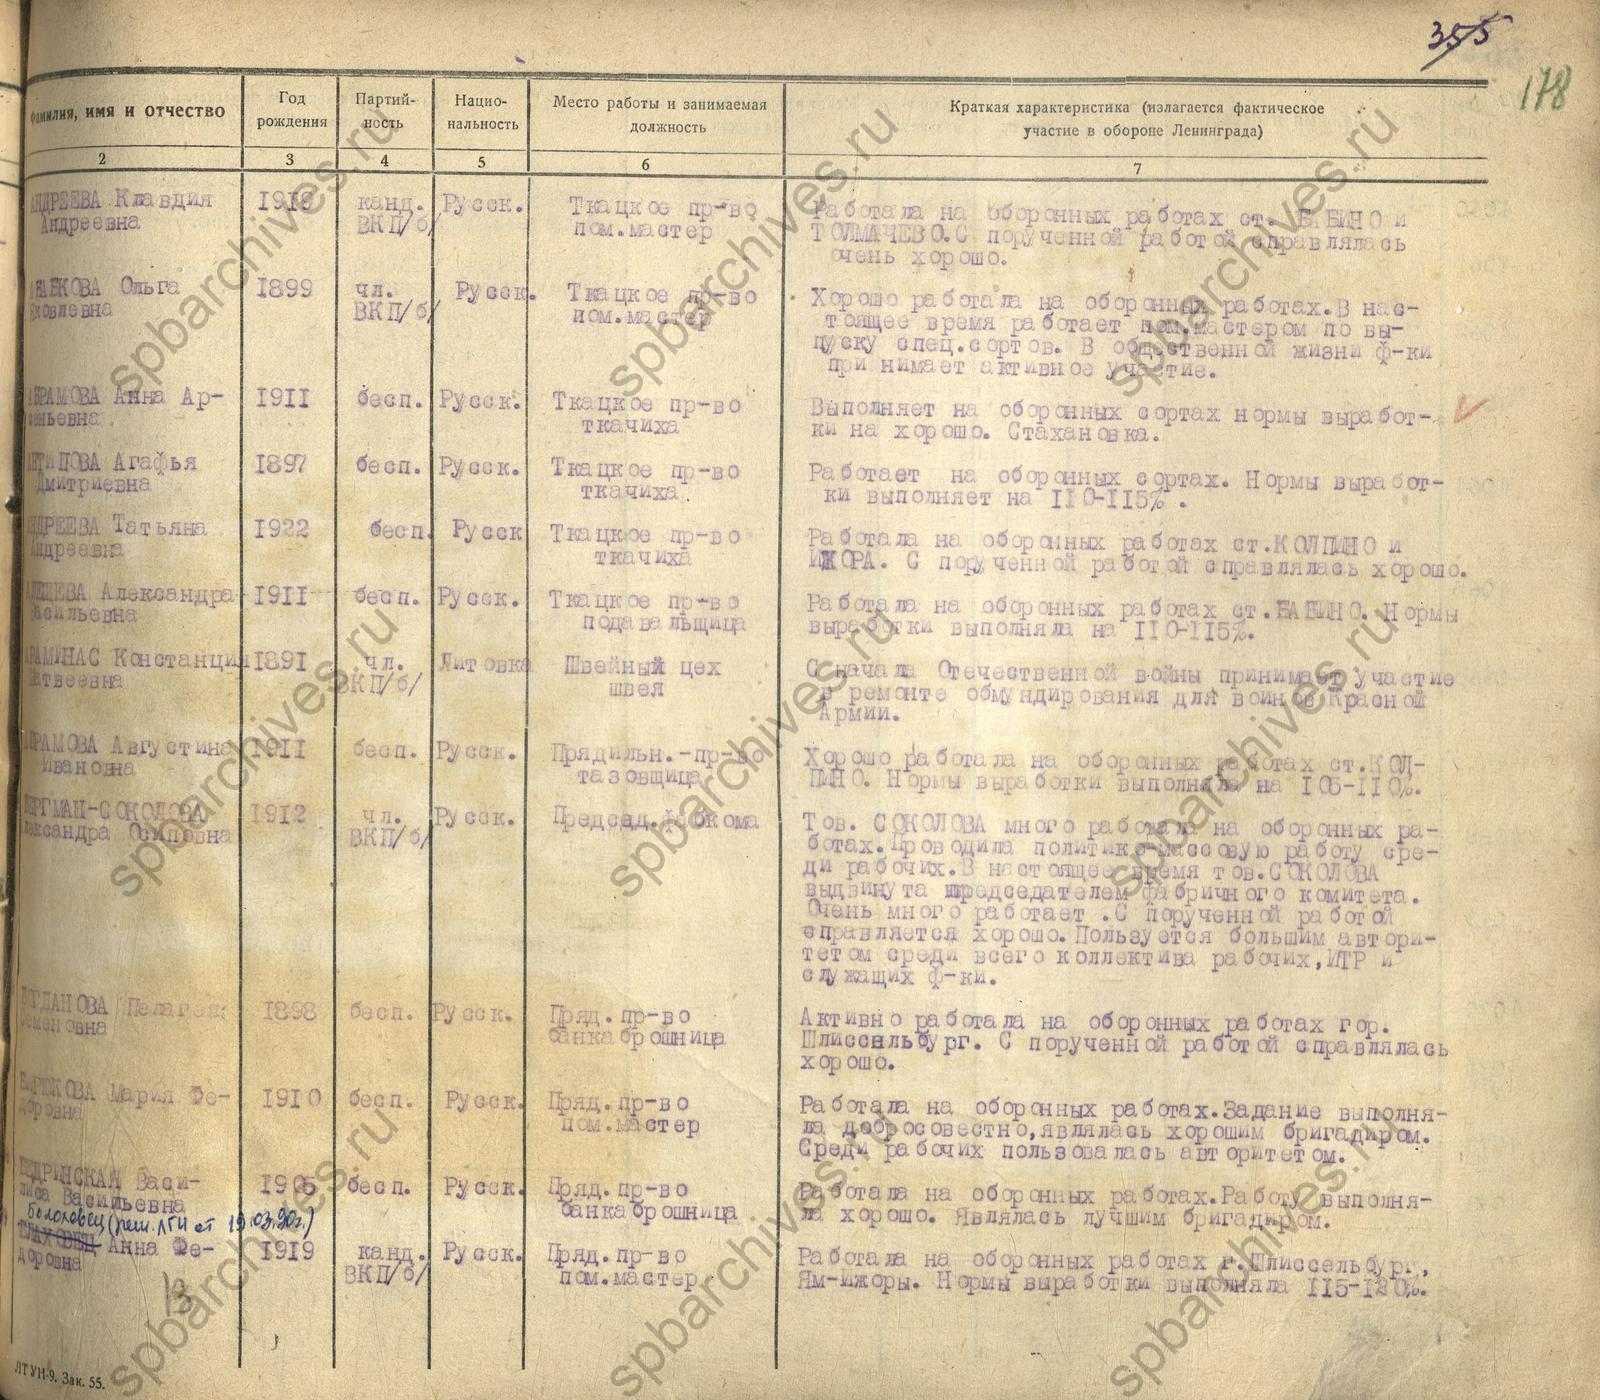 355
178
Фамилия, имя и отчество
Год рождения
Партий-
ность
Нацио-
нальность
Место работы и занимаемая
должность
Краткая характеристика (излагается фактическое
участие в обороне Ленинграда)
2 3 4 5 6 7
АНДРЕЕВА Клавдия 1918 канд. Русск. Ткацкое пр-во Работала на оборонных работах ст. БАБИНО и
Андреевна ВКП/б/ пом.мастер ТОЛМАЧЕВО.С порученной работой справлялась
очень хорошо.
Ольга 1899 чл. Русск. Ткацкое пр-во Хорошо работала на оборонных работах.В нас-
Яковлевна ВКП/б/ пом.мастер тоящее время работает пом.мастером по вы-
пуску спец.сортов. В общественной жизни ф-ки
принимает активное участие.
АБРАМОВА Анна Ар- 1911 бесп. Русск. Ткацкое пр-во Выполняет на оборонных сортах нормы выработ-
сеньевна ткачиха ки на хорошо. Стахановка.
АНТИПОВА Агафья 1897 бесп. Русск. Ткацкое пр-во Работает на оборонных сортах. Нормы выработ-
Дмитриевна ткачиха. ки выполняет на 110-115% .
АНДРЕЕВА Татьяна 1922 бесп. Русск Ткацкое пр-во Работала на оборонных работах ст.КОЛПИНО и
Андреевна ткачиха ИЖОРА. С порученной работой справлялась хорошо.
Александра 1911 бесп. Русск. Ткацкое пр-во Работала на оборонных работах ст.БАБИНО. Нормы
Васильевна подавальщица выработки выполняла на 110-115%.
Констанция 1891 чл. Литовка Швейный цех С начала Отечественной войны принимает участие
Матвеевна ВКП/б/ швея в ремонте обмундирования для воинов Красной
Армии.
АБРАМОВА Августина 1911 бесп. Русск. Прядильн.-пр-во Хорошо работала на оборонных работах ст.КОЛ-
Ивановна тазовщица ПИНО. Нормы выработки выполнила на 105-110%.
БЕРГМАН-СОКОЛОВА 1912 чл. Русск. Председ.фабкома Тов. СОКОЛОВА много работала на оборонных ра-
Александра Осиповна ВКП/б/ ботах.Проводила политико-массовую работу сре-
ди рабочих.В настоящее время тов.СОКОЛОВА
выдвинута председателем фабричного комитета.
Очень много работает .С порученной работой
справляется хорошо.Пользуется большим автори-
тетом среди всего коллектива рабочих,ИТР и
служащих ф-ки.
БОГДАНОВА Пелагея 1898 бесп. Русск. Пряд.пр-во Активно работала на оборонных работах гор.
Семеновна банкаброшница Шлиссельбург. С порученной работой справлялась
хорошо.
БИРЮКОВА Мария Фе- 1910 бесп. Русск. Пряд.пр-во Работала на оборонных работах.Задание выполня-
доровна пом.мастер ла добросовестно,являлась хорошим бригадиром.
Среди рабочих пользовалась авторитетом.
БЕДРИНСКАЯ Васи- 1905 бесп. Русск. Пряд.пр-во Работала на оборонных работах.Работу выполня-
лиса Васильевна банкаброшница ла хорошо. Являлась лучшим бригадиром.
Болоховец (реш. ЛГИ от 19.03.90г.)
БЛАХОВЕЦ Анна Фе- 1919 канд. Русск. Пряд.пр-во Работала на оборонных работах г.Шлиссельбург,
доровна ВКП/б/ пом.мастер Ям-Ижоры. Нормы выработки выполняла 115-120%.
13
ЛТ УН-9. Зак. 55.
spbarchives.ru
spbarchives.ru
spbarchives.ru
spbarchives.ru
spbarchives.ru
spbarchives.ru
spbarchives.ru
spbarchives.ru
spbarchives.ru